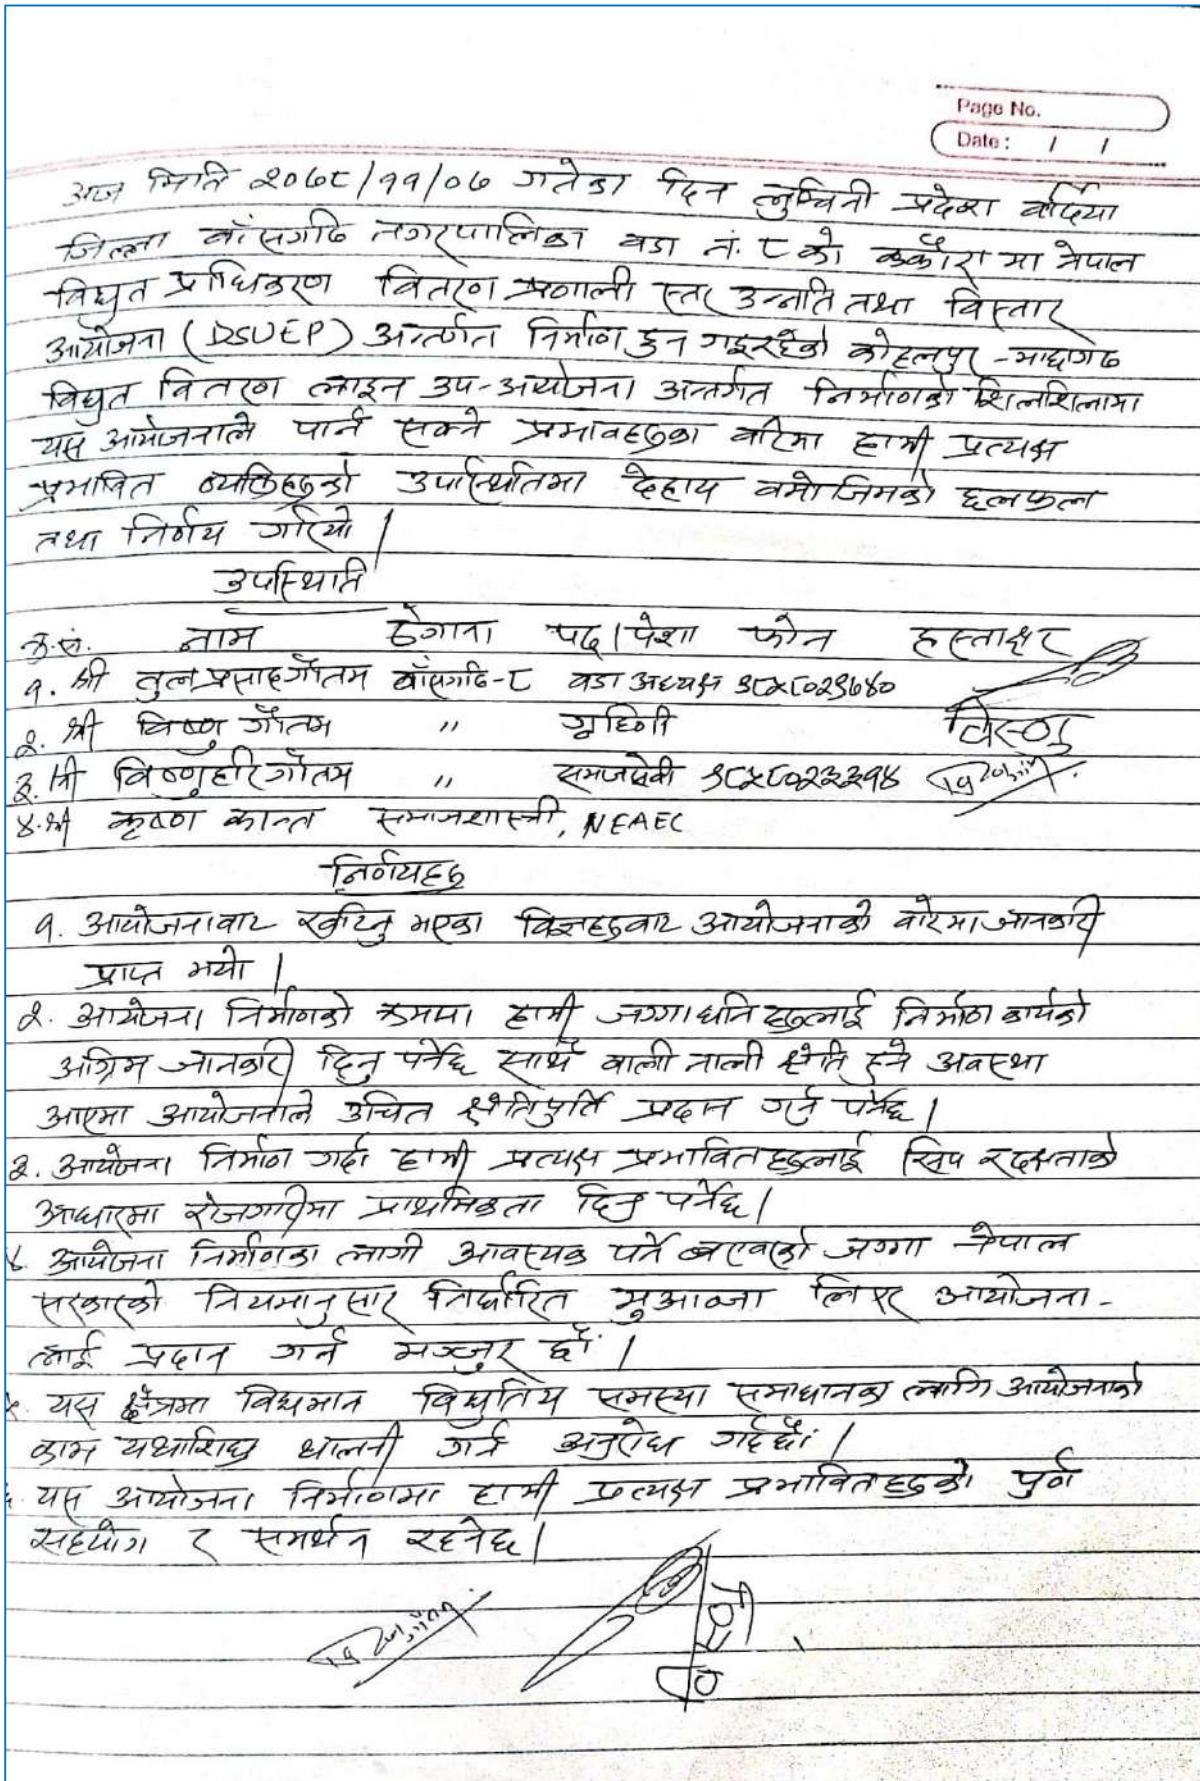 Page No.
Date: / /
आज मिति २०७८/११/०७ गतेका दिन लुम्बिनी प्रदेश बर्दिया
जिल्ला बाँसगढि नगरपालिका वडा नं. ८ को मा नेपाल
विद्युत प्राधिकरण वितरण प्रणाली स्तर उन्नति तथा विस्तार
आयोजना (DSUEP) अन्तर्गत निर्माण हुन गइरहेको कोहलपुर -
विद्युत वितरण लाइन उप-आयोजना अन्तर्गत निर्माणको शिलशिलामा
यस आयोजनाले पार्न सक्ने प्रभावहरुका बारेमा हामी प्रत्यक्ष
प्रभावित व्यक्तिहरुको उपस्थितिमा देहाय बमोजिमको छलफल
तथा निर्णय गरियो |
उपस्थिति
क्र.सं. नाम ठेगाना पद/पेशा फोन हस्ताक्षर
१. श्री तुल प्रसाद गौतम बाँसगढि-८ वडा अध्यक्ष
२. श्री विष्णु गौतम " गृहिणी विस्णु
३. श्री विष्णुहरि गौतम " समाजसेवी
४. श्री कृष्ण कान्त समाजशास्त्री, NEAEC
निर्णयहरु
१. आयोजनाबाट खटिनु भएका विज्ञहरुबाट आयोजनाको बारेमा जानकारी
प्राप्त भयो |
२. आयोजना निर्माणको क्रममा हामी जग्गाधनिहरुलाई निर्माण कार्यको
अग्रिम जानकारी दिनु पर्नेछ साथै बाली नाली क्षेति हुने अवस्था
आएमा आयोजनाले उचित क्षेतिपुर्ति प्रदान गर्नु पर्नेछ |
३. आयोजना निर्माण गर्दा हामी प्रत्यक्ष प्रभावितहरुलाई सिप र दक्षताको
आधारमा रोजगारीमा प्राथमिकता दिनु पर्नेछ |
४. आयोजना निर्माणका लागी आवस्यक पर्ने जग्गा नेपाल
सरकारको नियमानुसार निर्धारित मुआब्जा लिएर आयोजना-
लाई प्रदान गर्न मञ्जुर छौं |
५. यस क्षेत्रमा विद्यमान विद्युतिय समस्या समाधानका लागि आयोजनाको
काम यथाशिघ्र थालनी गर्न अनुरोध गर्दछौं |
६. यस आयोजना निर्माणमा हामी प्रत्यक्ष प्रभावितहरुको पुर्ण
सहयोग र समर्थन रहनेछ |